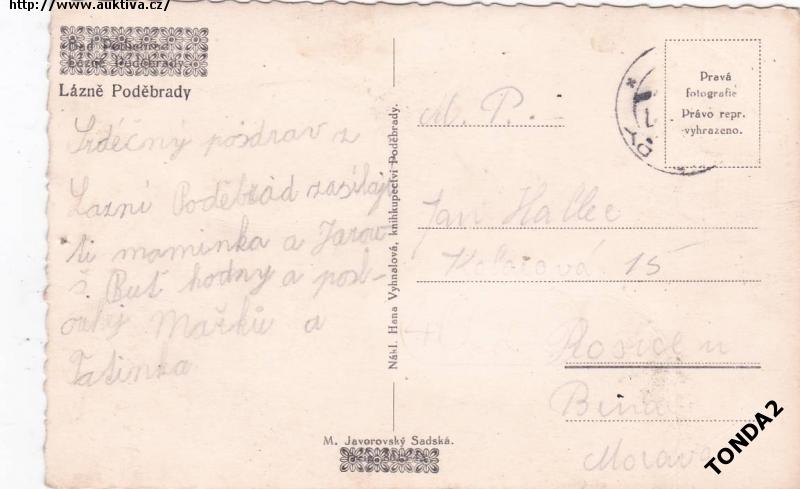 http://www.auktiva.cz/
Lázně Poděbrady
Lázně Poděbrady
Srdečný pozdrav z
Lazní Poděbrad zasílají
ti maminka a
Buť hodny a
a
Tatinka
Nákl. Hana Vyhnalová, knihkupectví Poděbrady.
M. Javorovský Sadská.
Pravá
fotografie
Právo repr.
vyhrazeno.
M. P.
Jan
15
Rosice u
Brna
Morava
TONDA2